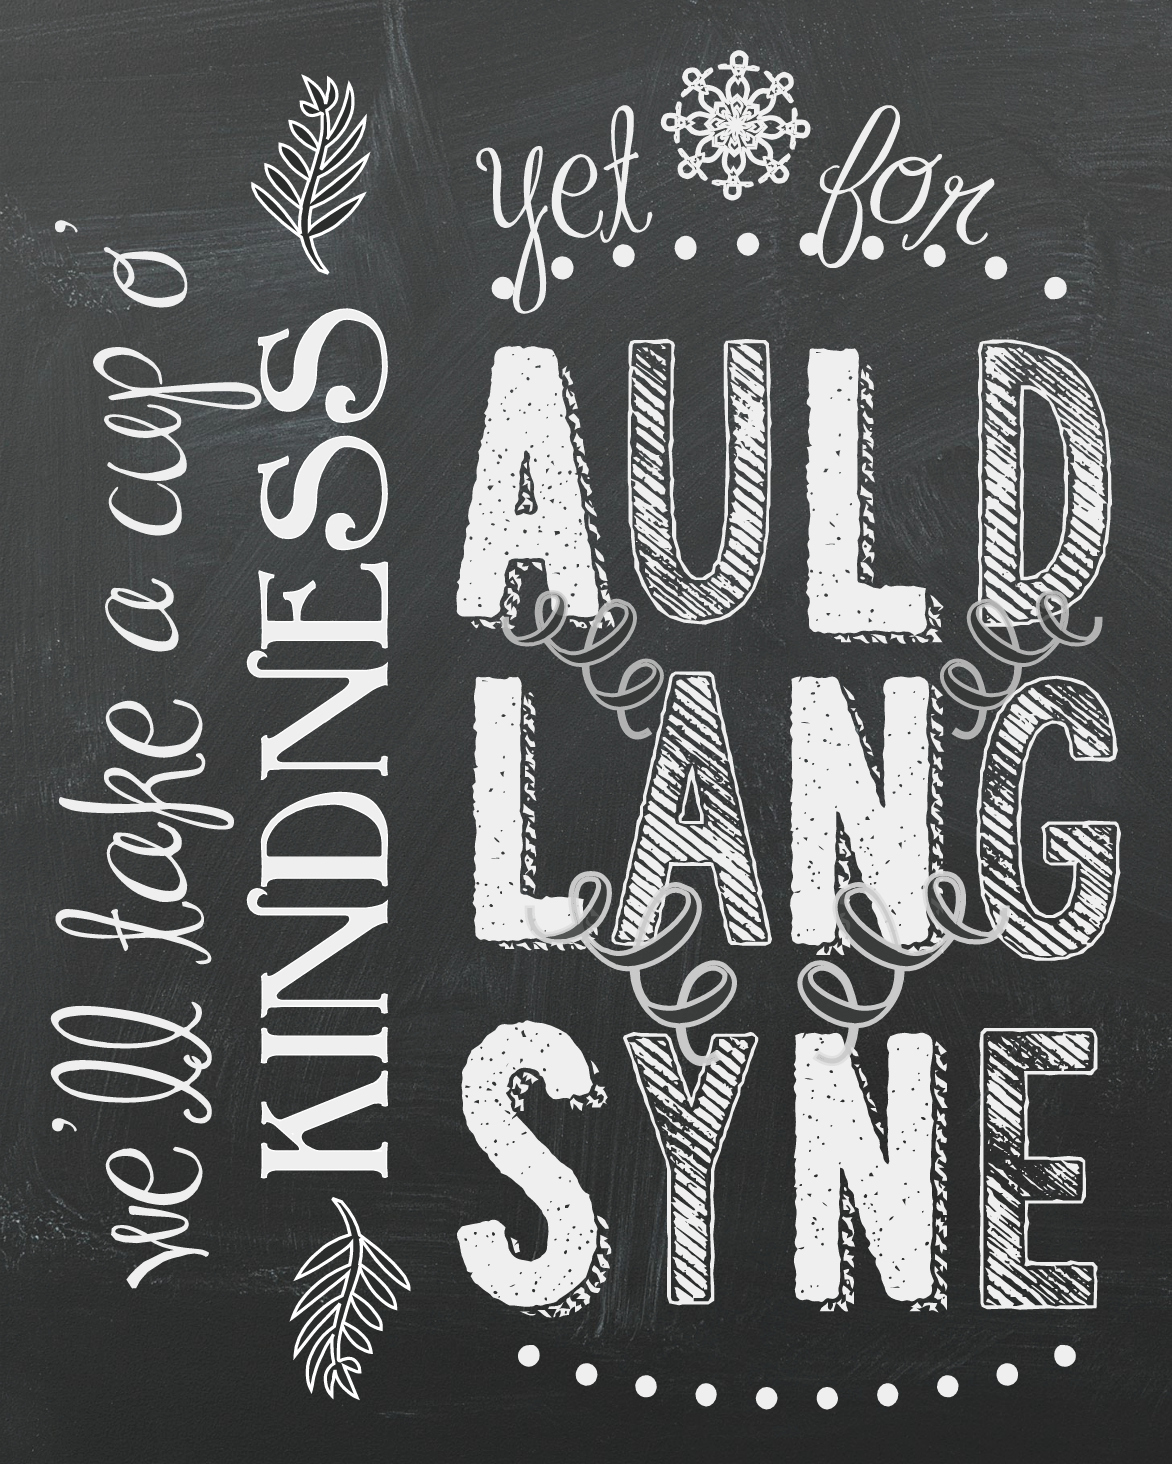 we'll take a cup o'
KINDNESS
yet for
AULD
LANG
SYNE